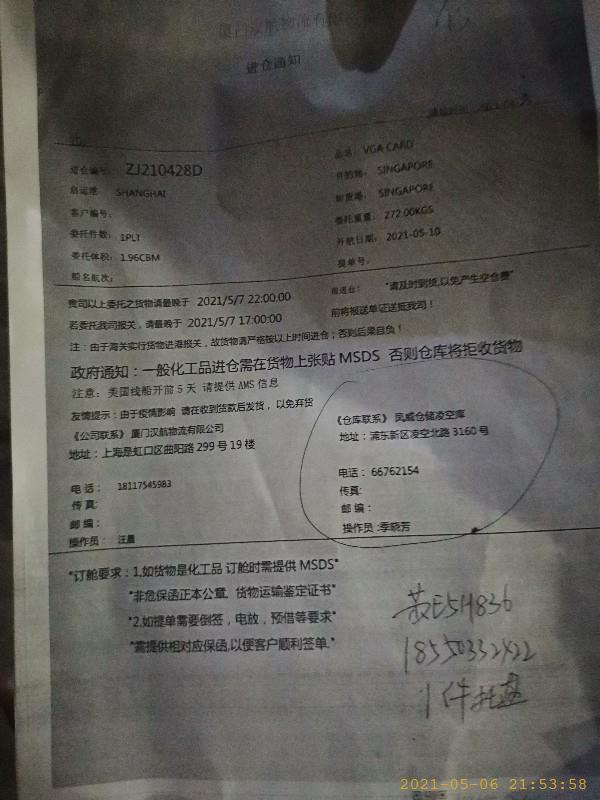 进仓通知
进仓编号: ZJ210428D
品名: VGA CARD
启运港 SHANGHAI
目的地: SINGAPORE
客户编号:
卸货港: SINGAPORE
委托件数: 1PLT
委托重量: 272.00KGS
委托体积: 1.96CBM
开航日期: 2021-05-10
船名航次:
提单号:
贵司以上委托之货物请最晚于 2021/5/7 22:00:00
"请及时到货,以免产生空仓费"
若委托我司报关,请最晚于 2021/5/7 17:00:00
前将报送单证送抵我司!
注:由于海关实行货物进港报关,故货物请严格按以上时间进仓;否则后果自负!
政府通知:一般化工品进仓需在货物上张贴 MSDS 否则仓库将拒收货物
注意:美国线船开前 5 天 请提供 AMS 信息
友情提示:由于疫情影响 请在收到货款后发货,以免弃货
《公司联系》厦门汉航物流有限公司
地址:上海是虹口区曲阳路 299 号 19 楼
电 话: 18117545983
传 真:
邮 编:
操作员: 汪晨
《仓库联系》 凤威仓储凌空库
地址:浦东新区凌空北路 3160 号
电话: 66762154
传真:
邮 编:
操作员:季晓芳
"订舱要求:1.如货物是化工品 订舱时需提供 MSDS"
"非危保函正本公章, 货物运输鉴定证书"
"2.如提单需要倒签,电放,预借等要求"
"需提供相对应保函,以便客户顺利签单."
苏E5H836
18550332422
1件托盘
2021-05-06 21:53:58